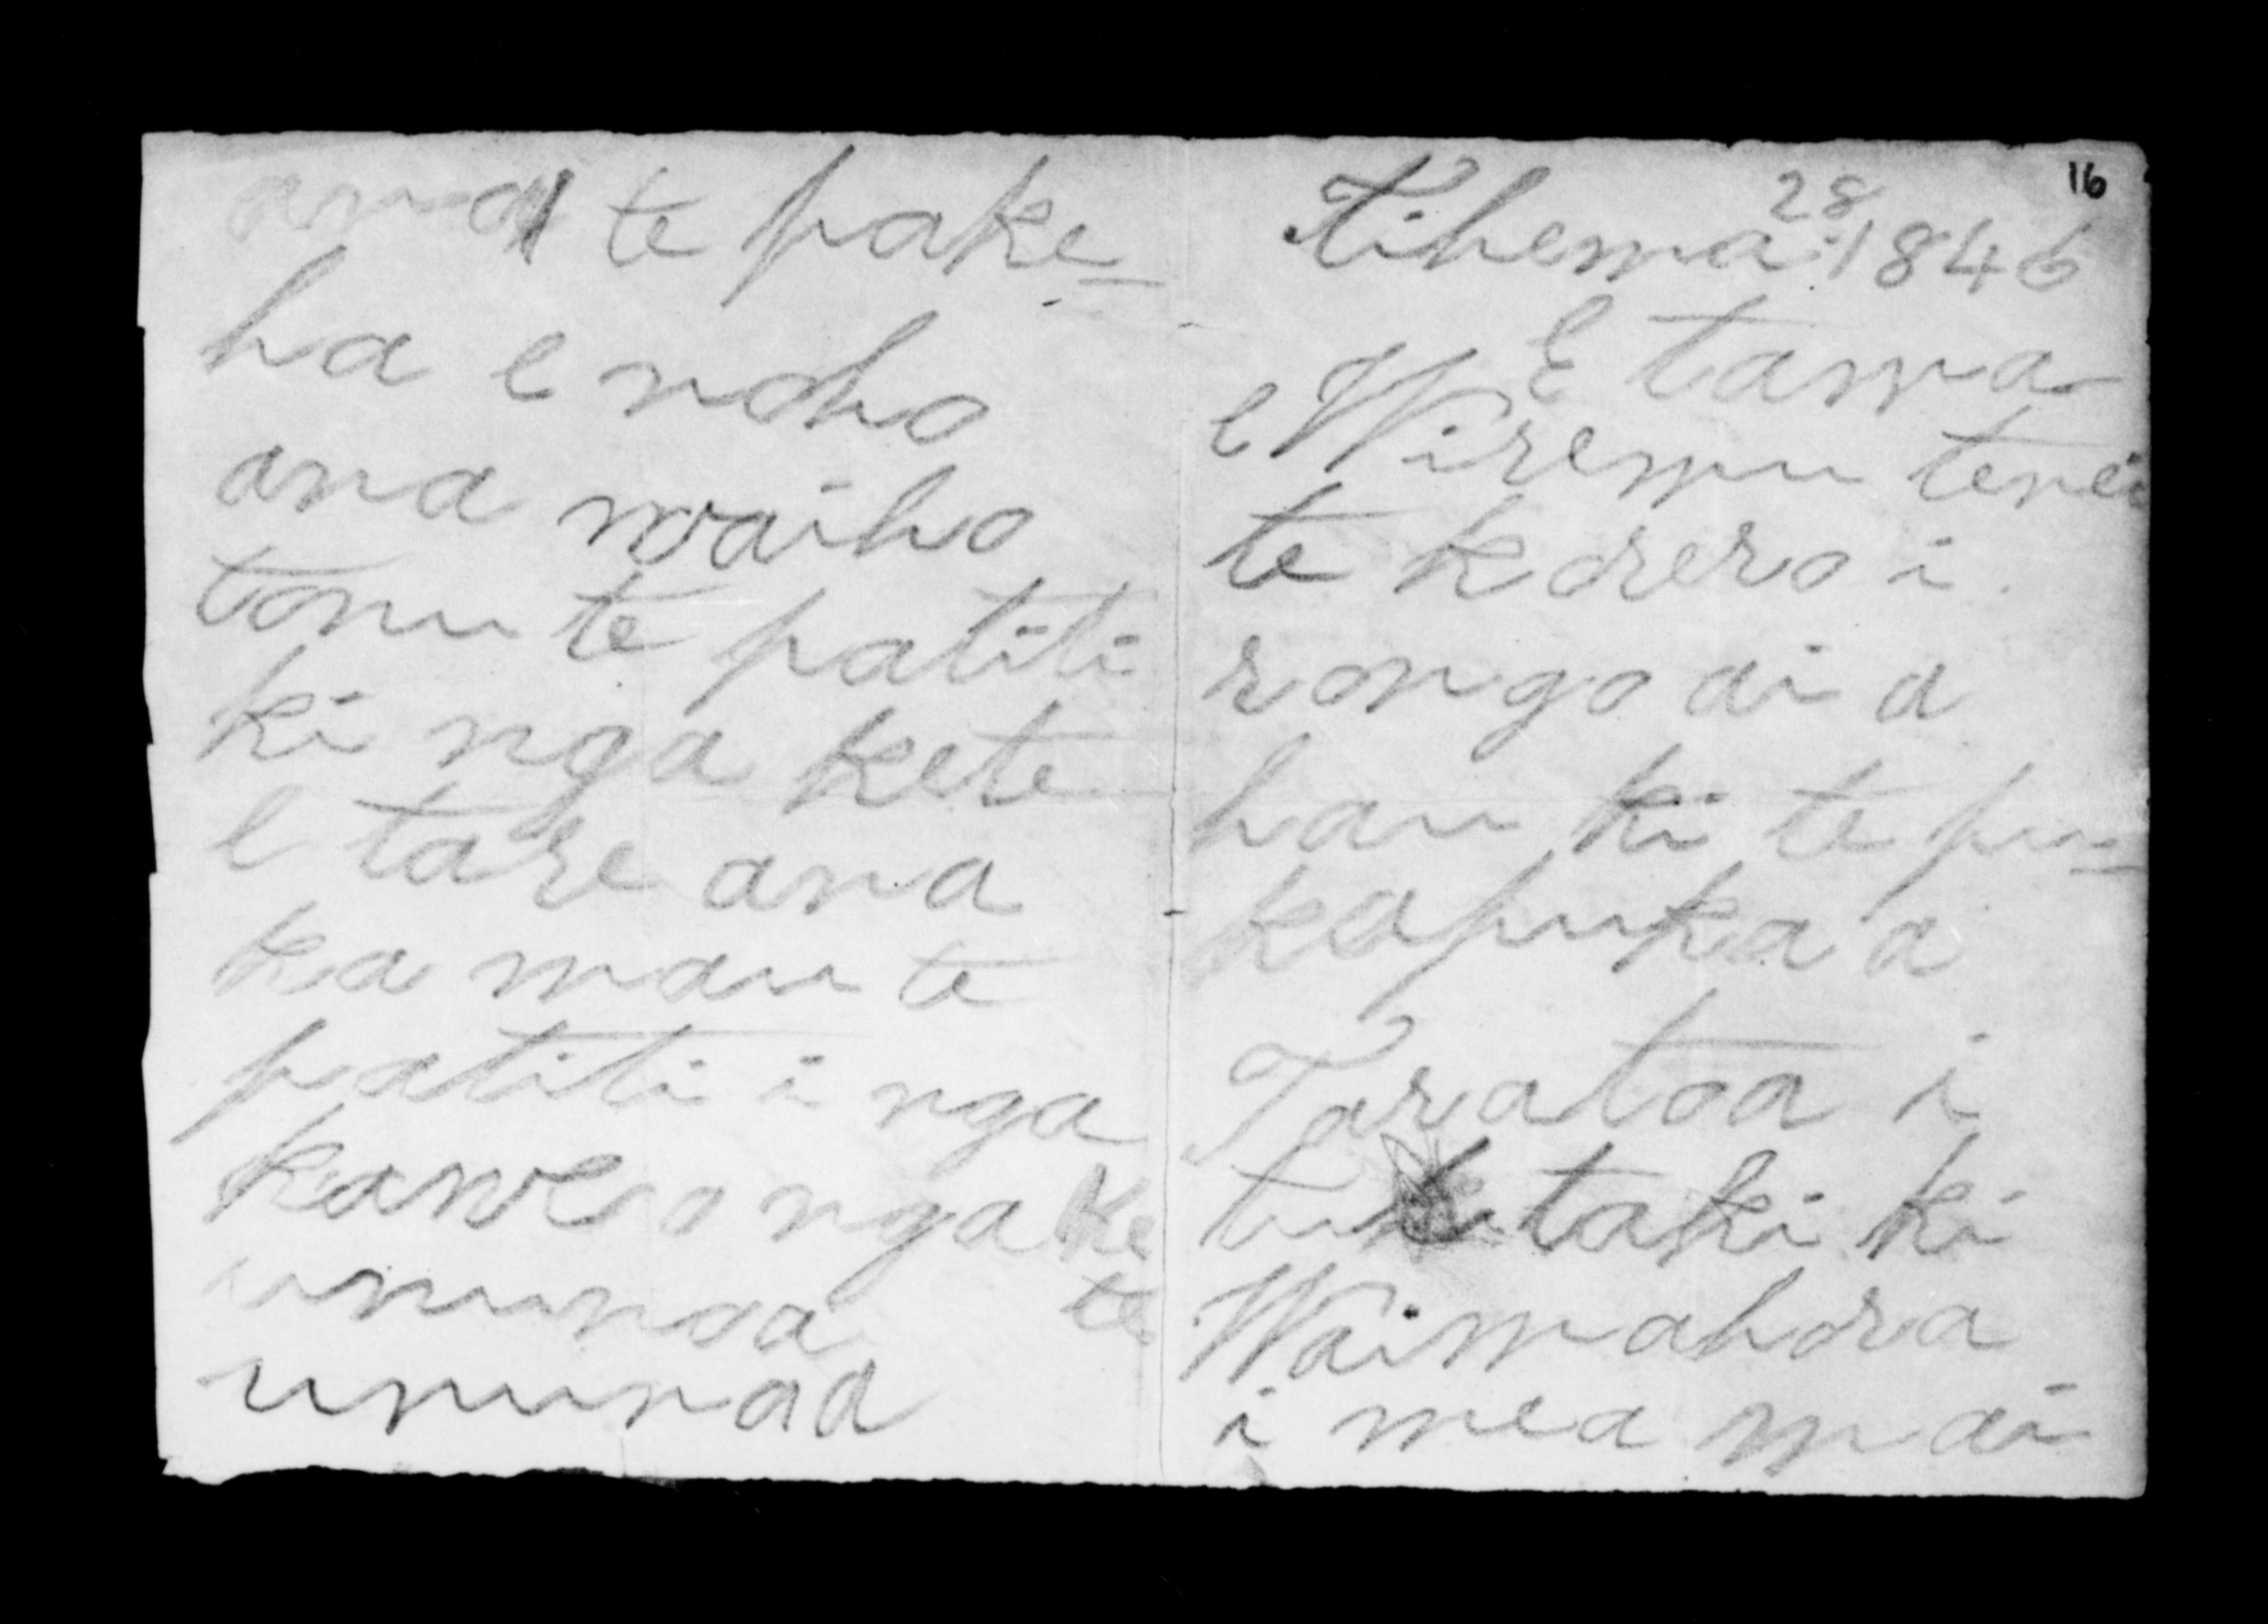 16
Tihema 28 1846
E tama
e Wiremu tenei
te korero i
rongo ai a
hau ki te pu=
kapuka a
Taratoa i
tu taki ki
Waimahora
i mea mai
ana te pake=
ha e noho
ana waiho
tonu te patiti
ki nga kete
e tare ana
ka mau te
patiti i nga
kawe o nga ke
te
ununoa
ununoa